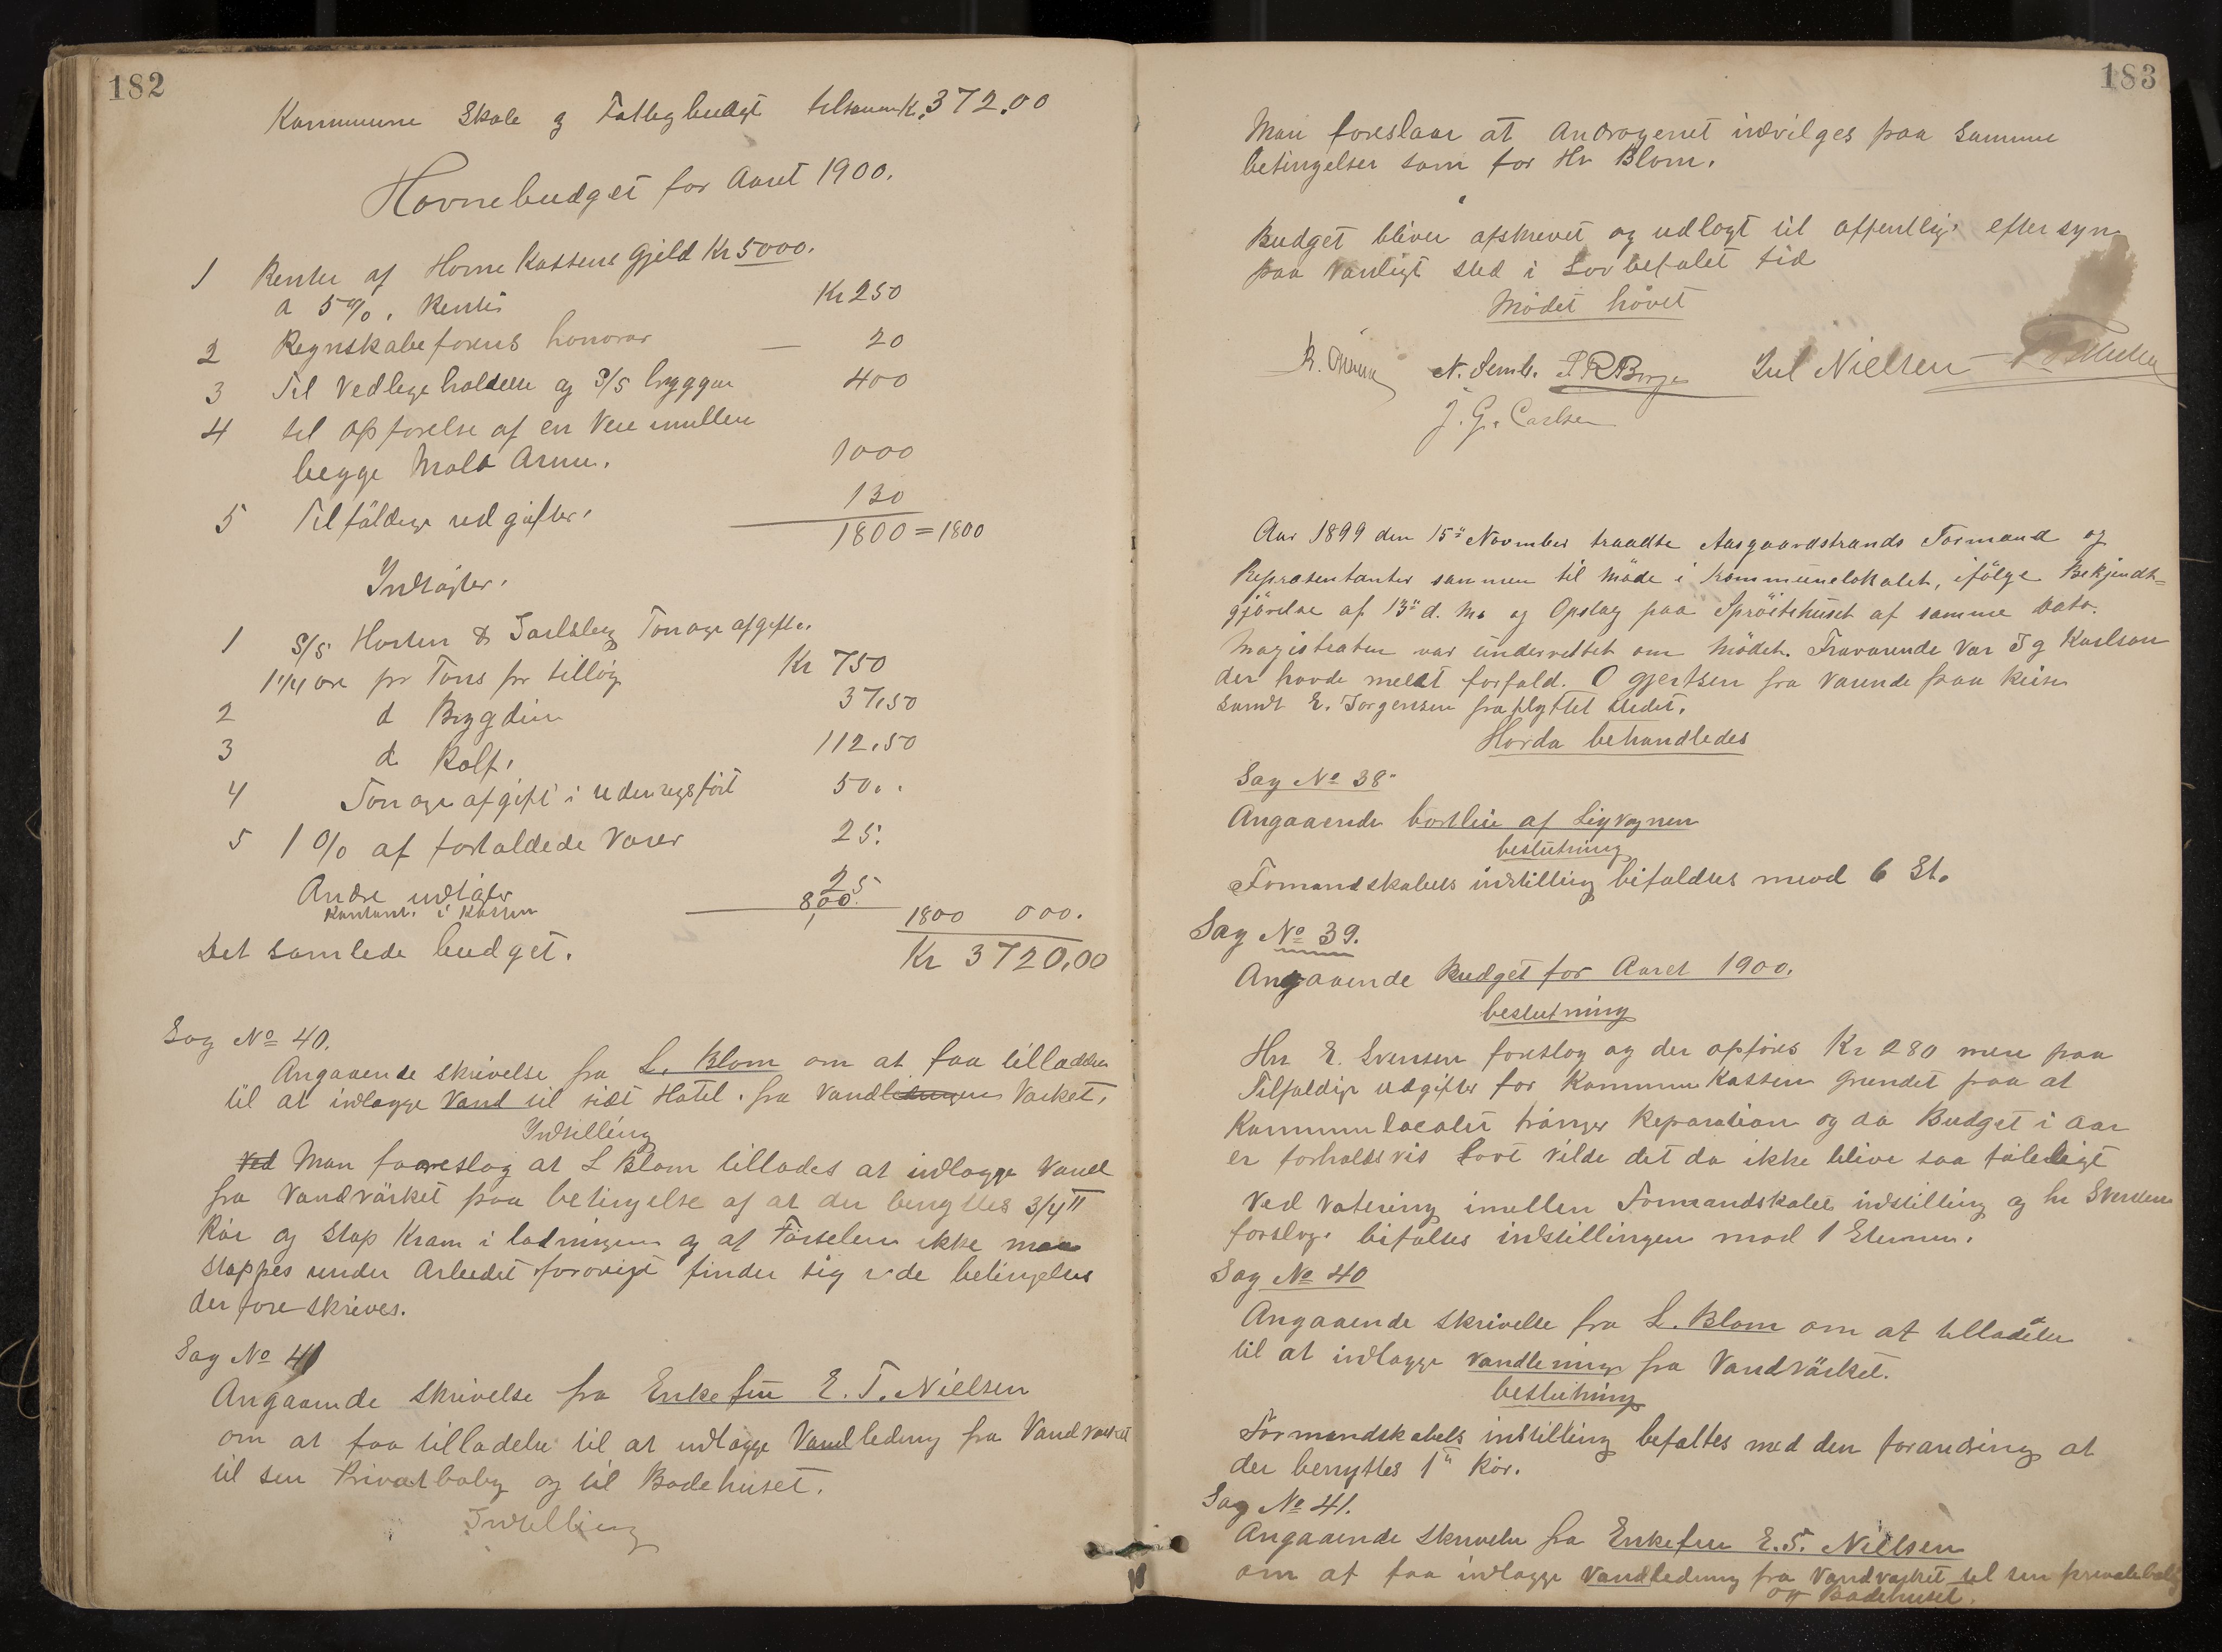 182
Kommune Skole og Fattigbudget tilsammen K. 372.00
Havnebudget for Aaret 1900.
1 Renter af Havne Kassens Gjeld Kr 5000.
a 5%. Rente Kr 250
2 Regnskabsførens honorar — 20
3 Til Vedligeholdelse og S/S bryggen 400
4 til opførelse af en Vei imellem
begge Molo Arme. 1000
5 Tilfäldige udgifter. 130
1800 = 1800
Indtägter.
1 S/S Horten & Jarlsberg Tonage afgift.
1 1/4 øre pr Tons pr tilløg Kr 750
2 d Bygdin 37,50
3 d Rolf. 112.50
4 Tonage afgift i udenrigsfart 50..
5 1 % af forholdede Varer 25.
Andre indtägter 25
Kontant. i Kassen 800. 1800 000.
Det samlede budget. Kr 3720,00
Sag No 40.
Angaaende skrivelse fra L. Blom om at faa tilladelse
til at indlægge Vand til sidt Hotel. fra Vandledningen Værket,
Indstilling
Ved Man foreslog at L Blom tillades at indlægge Vand
fra Vandvärket paa betingelse af at der benyttes 3/4"
Rør og Stop Kran i ledningen og at Färselen ikke maa
stoppes under Arbeidet forøvrigt finder sig i de betingelser
der foreskrives.
Sag No 41
Angaaende skrivelse fra Enkefru E. T. Nielsen
om at faa tilladelse til at indlægge Vandledning fra Vandværket
til sin Privatbolig og til Badehuset.
Indstilling
183
Man foreslaar at Andragenet indvilges paa samme
betingelser som for Hr Blom.
Budget bliver afskrevet og udlagt til offentlig eftersyn
paa Vanligt sted i Lovbefalet tid
Mødet hävet
N. Semb. P R Borge Jul Nielsen
J. G. Carlsen
Aar 1899 den 15de November traadte Aasgaardstrands Formænd og
Repræsentanter sammen til Møde i Kommunelokalet, ifølge Bekjendt-
gjørelse af 13de d. M. og Opslag paa Sprøitehuset af samme Dato.
Magistraten var underrettet om Mødet. Fraværende var J g Karlson
der havde meldt forfald. O Gjertsen fra værende paa Reise
samt E. Jørgensen fraflyttet stedet.
Hvorda behandledes
Sag No 38
Angaaende bortleie af Ligvognen
beslutning
Formandskabets indstilling bifaldtes mod 6 St.
Sag No 39.
Angaaende Budget for Aaret 1900.
beslutning
Hr E. Svensen foreslog og der opføres Kr 280 mere paa
Tilfaldige udgifter for Kommune Kassen Grundet paa at
Kommunelocalet tränger Reparation og da Budget i aar
er forholdsvis Lavt vilde det da ikke blive saa føleligt
Ved Votering imellem Formandskabet indstilling og hr Svensens
forslag. bifaltes indstillingen mod 1 Stemme.
Sag No 40
Angaaende skrivelse fra L. Blom om at tilladelse
til at indlægge vandledning fra Vandvärket.
beslutning
Formandskabets indstilling befaltes med den forandring at
der benyttes 1" Rør.
Sag No 41.
Angaaende Skrivelse fra Enkefru E. T. Nielsen
om at faa indlægge Vandledning fra Vandværket til sin privatebolig
og Badehuset.